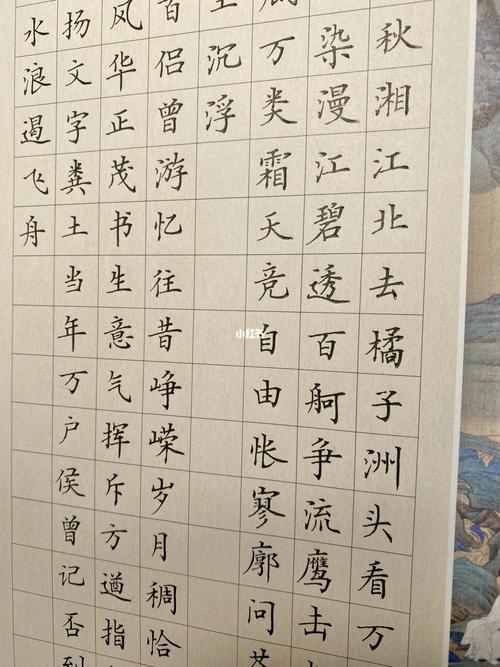 秋湘江北去橘子洲头看万
染漫江碧透百舸争流鹰击
万类霜天竞自由怅寥廓问
沉浮
百侣曾游忆往昔峥嵘岁月稠恰
风华正茂书生意气挥斥方遒指
扬文字粪土当年万户侯曾记否到
水浪遏飞舟
小红书